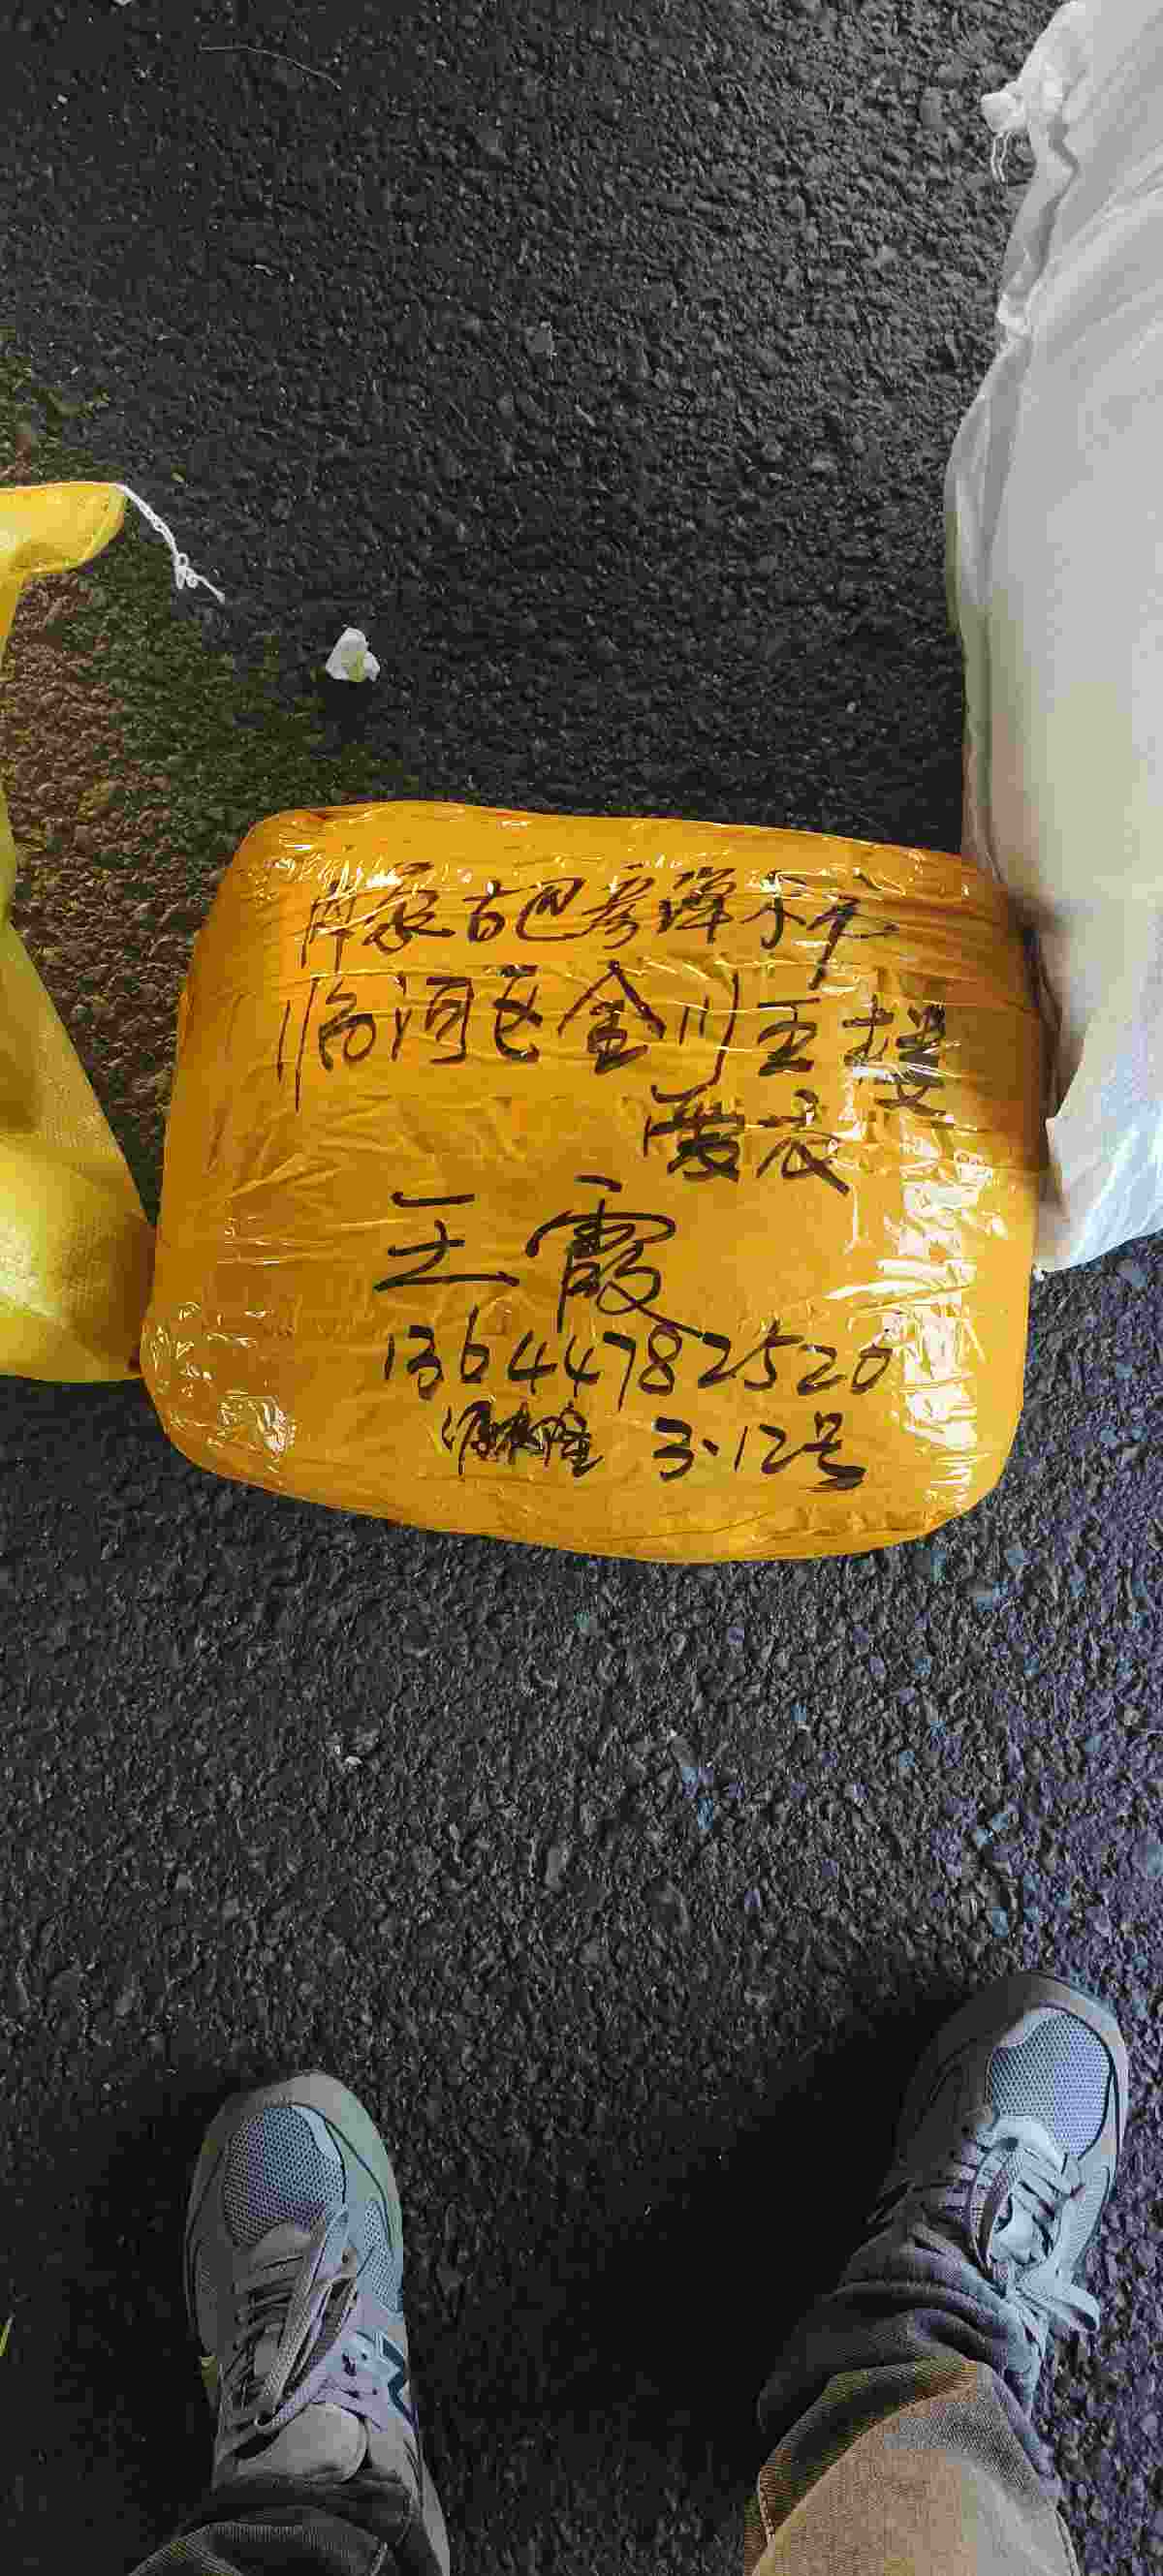 内蒙古巴彦淖尔市
临河区金川五楼
王霞
13644782520
3.12号